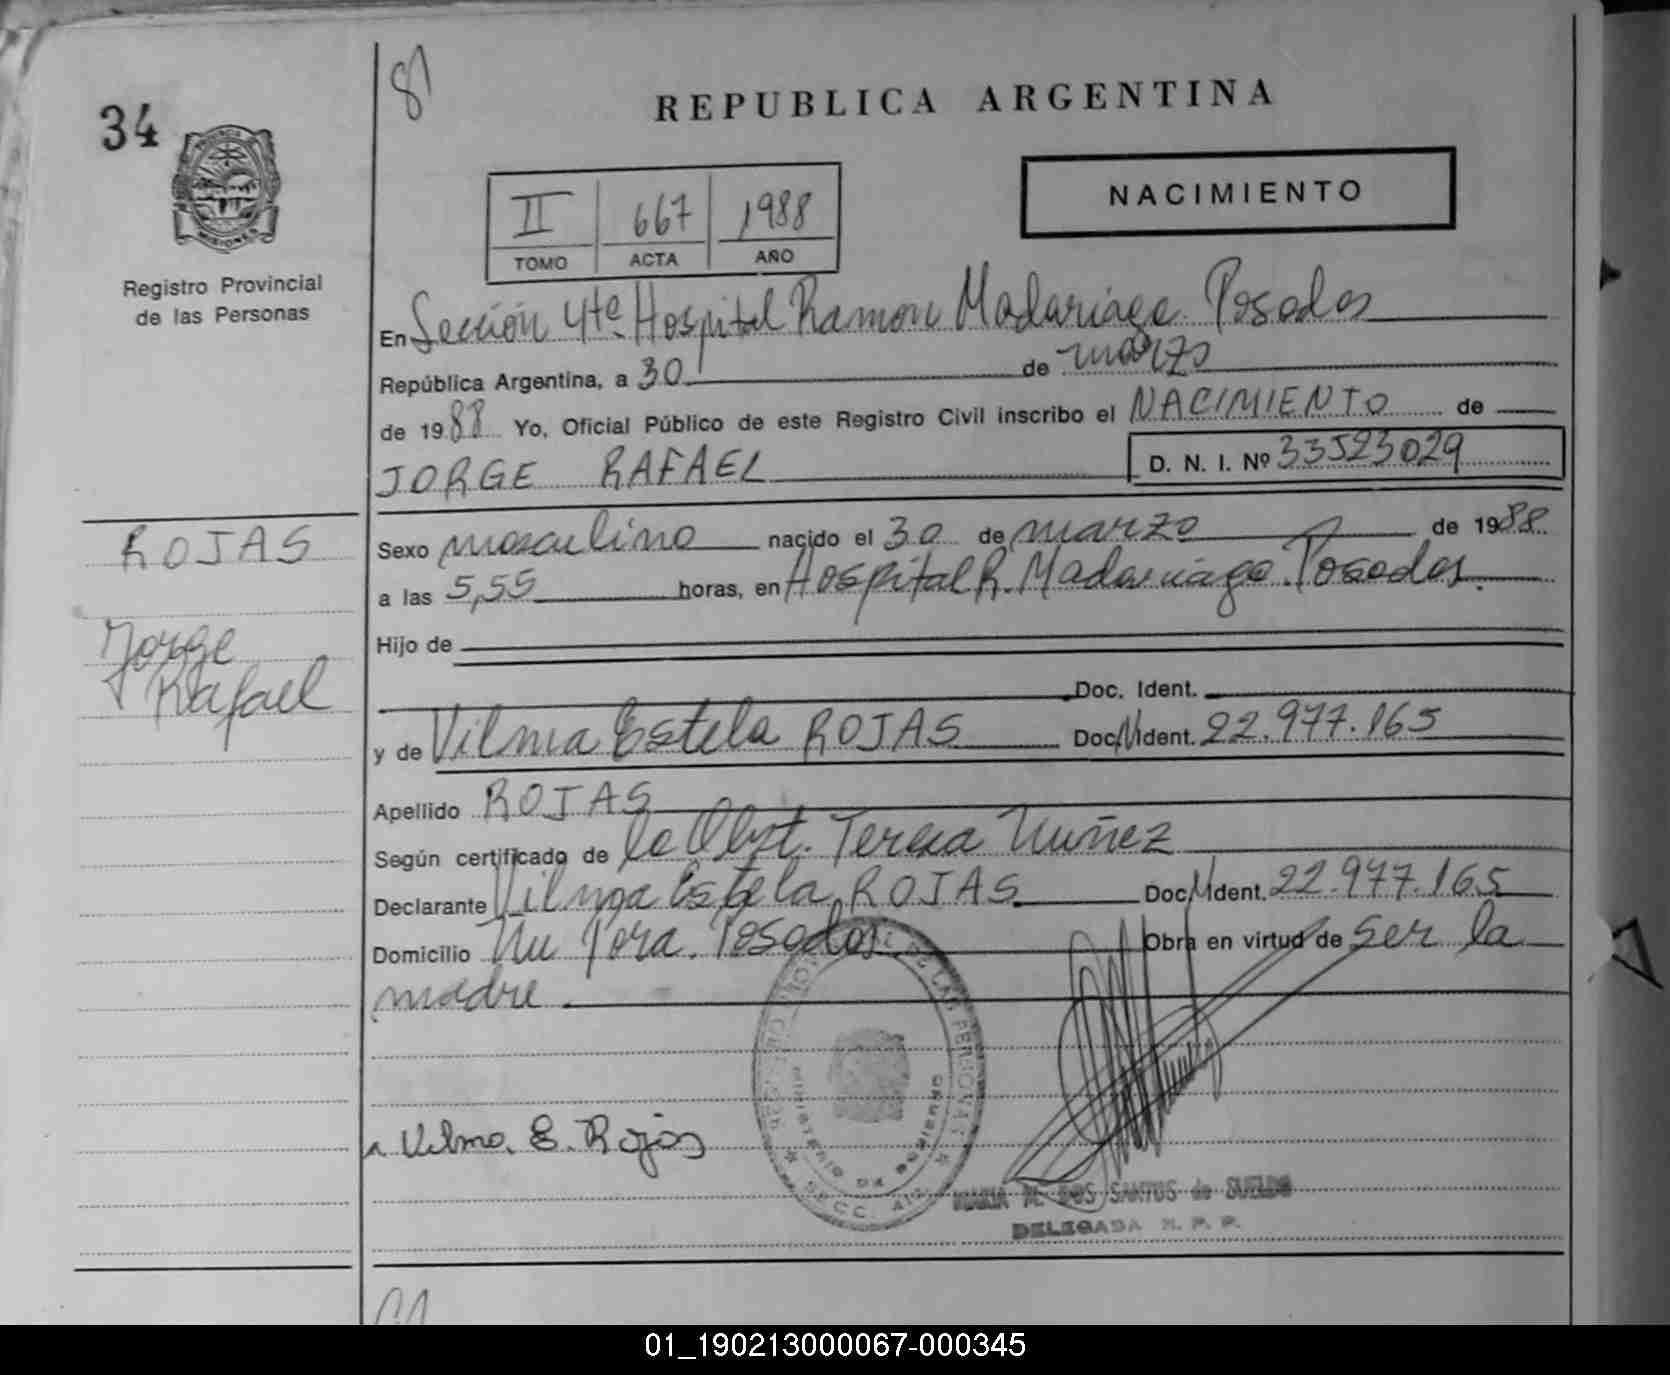 81
34
REPUBLICA ARGENTINA
PROVINCIA
MISIONES
Registro Provincial
de las Personas
II 667 1988
TOMO ACTA AÑO
NACIMIENTO
En Sección 4ta Hospital Ramon Madariaga Posadas
República Argentina, a 30 de marzo
de 1988 Yo, Oficial Público de este Registro Civil inscribo el NACIMIENTO de
JORGE RAFAEL D. N. I. Nº 33523029
ROJAS
Jorge
Rafael
Sexo masculino nacido el 30 de marzo de 1988
a las 5,55 horas, en Hospital R. Madariaga. Posadas.
Hijo de
Doc. Ident.
y de Vilma Estela ROJAS Doc. Ident. 22.977.165
Apellido ROJAS
Según certificado de la Obst. Teresa Nuñez
Declarante Vilma Estela ROJAS Doc. Ident. 22.977.165
Domicilio Ñu Pora. Posadas Obra en virtud de ser la
madre
Vilma. E. Rojas
DE LAS PERSONAS
MINISTERIO DE
MARIA DOS SANTOS de SUELDO
DELEGADA R. P. P.
01_190213000067-000345